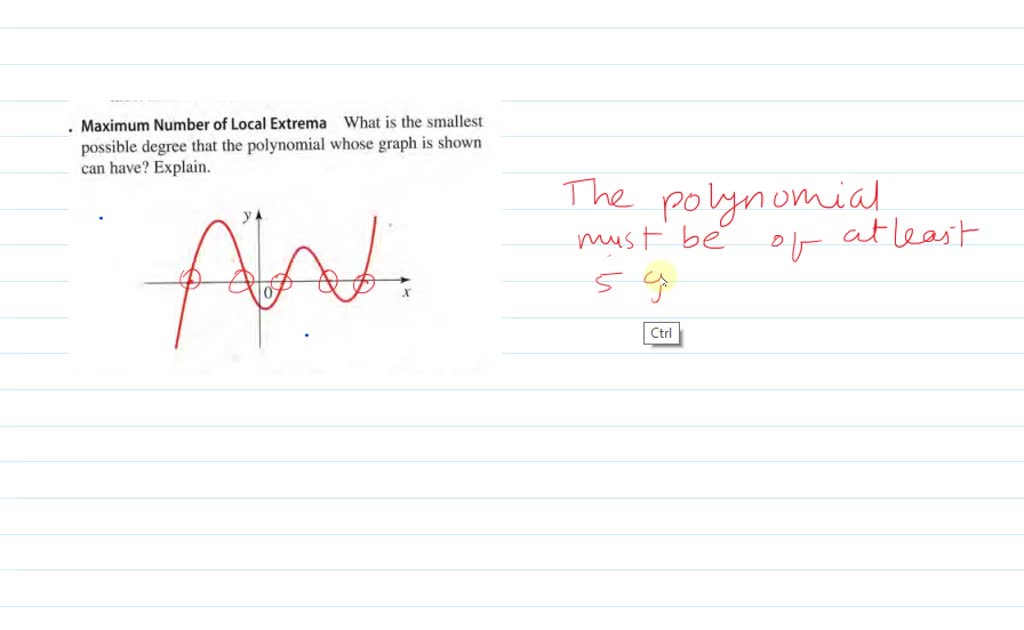 . Maximum Number of Local Extrema What is the smallest
possible degree that the polynomial whose graph is shown
can have? Explain.
y
0
x
The polynomial
must be of atleast
5
Ctrl